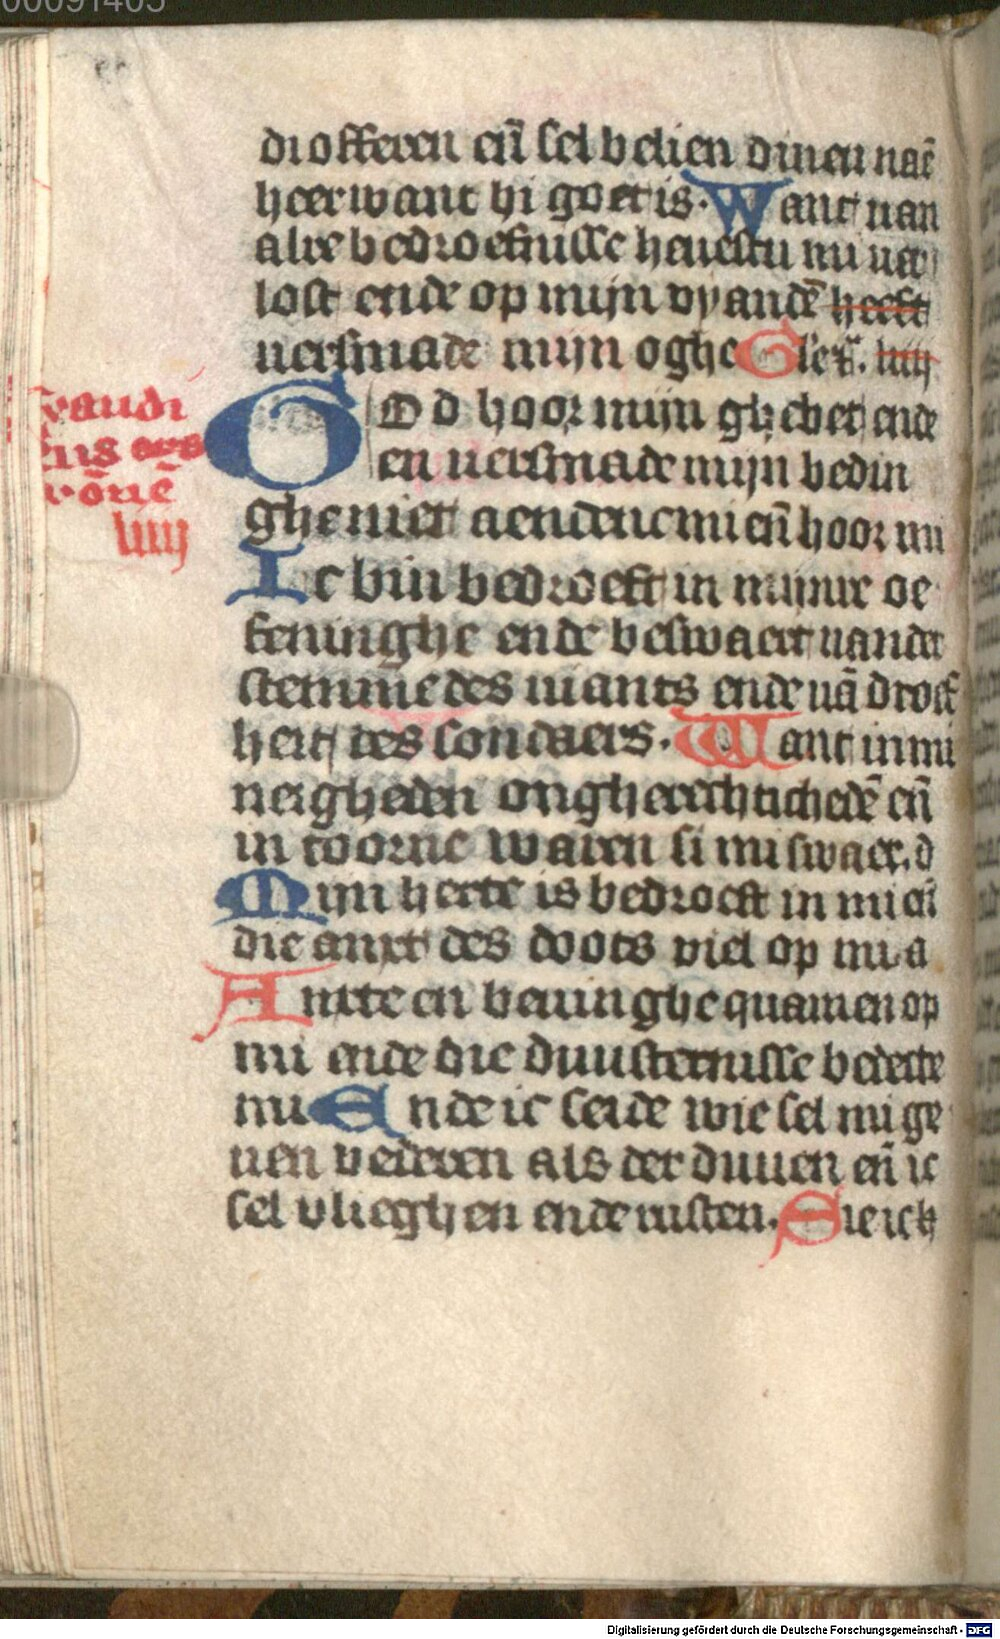 00091405
di offeren en̄ sel belien dinen nāe
heer want hi goet is. Want uan
alre bedroefnisse heuestu mi uer
lost ende op mijn vyandē heeft
uersmade mijn oghe Gle
GOd hoor mijn ghebet ende
en uersmade mijn bedin
ghe niet aendenc mi en̄ hoor mi
Ic bin bedroeft in mijnre oe
feninghe ende beswaert uander
stemme des uiants ende uā droef
heit des sondaers. Want in mi
neigheden ongherechtichedē en̄
in toorne waren si mi swaer. d
Mijn herte is bedroeft in mi en̄
die anxt des doots viel op mi a
Anxte en beuinghe quamen op
mi ende die duusternisse bedecte
mi Ende ic seide wie sel mi ge
uen vederen als der duuen en̄ ic
sel vlieghen ende rusten. Sie ick
xaudi
us
liiij
Digitalisierung gefördert durch die Deutsche Forschungsgemeinschaft - DFG